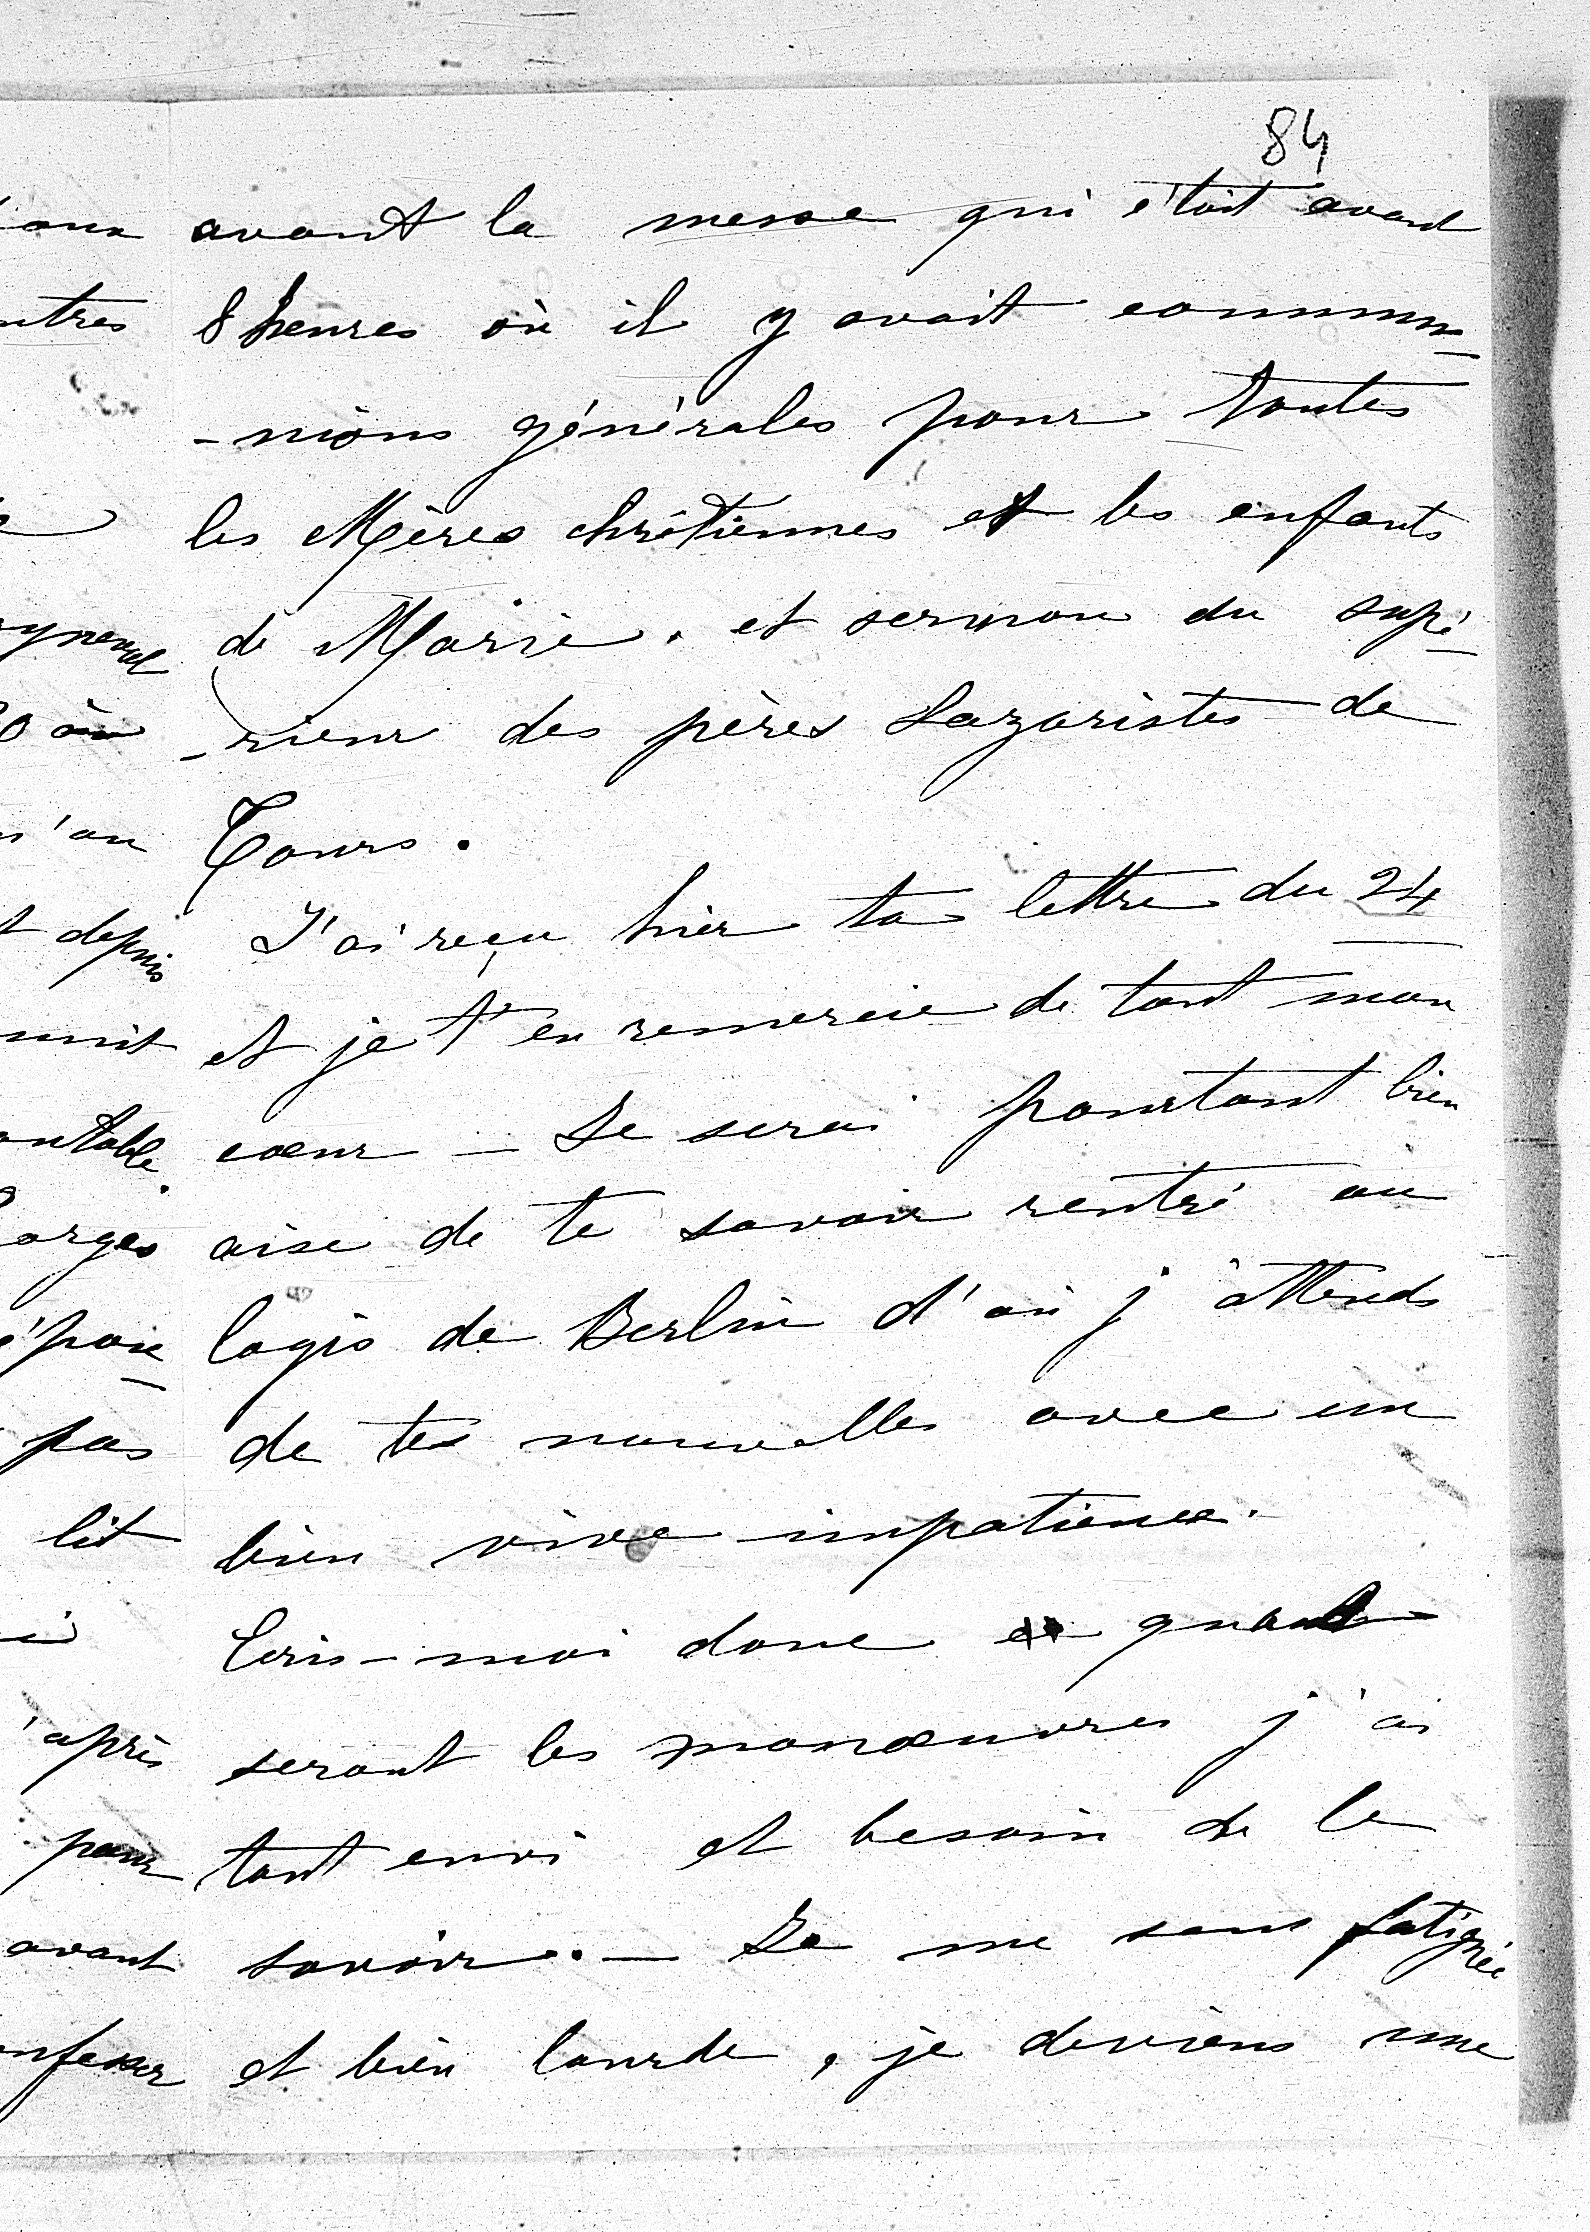 84
avant la messe qui était avant
8 heures où il y avait commu-
-nions générales pour toutes
les Mères chrétiennes et les enfants
de Marie. et sermon du supé-
-rieur des pères Lazaristes de
Tours.
J'ai reçu hier ta lettre du 24
et je t'en remercie de tout mon
cœur — Je serai pourtant bien
aise de te savoir rentré au
logis de Berlin d'où j'attends
de tes nouvelles avec un
bien vive impatience.
Ecris-moi donc quand
seront les manœuvres j'ai
tant envi et besoin de le
savoir. — Je me sens fatiguée
et bien lourde, je deviens une
ntres
depuis
ontable.
pas
lit
'après
pour
avant
onfesser